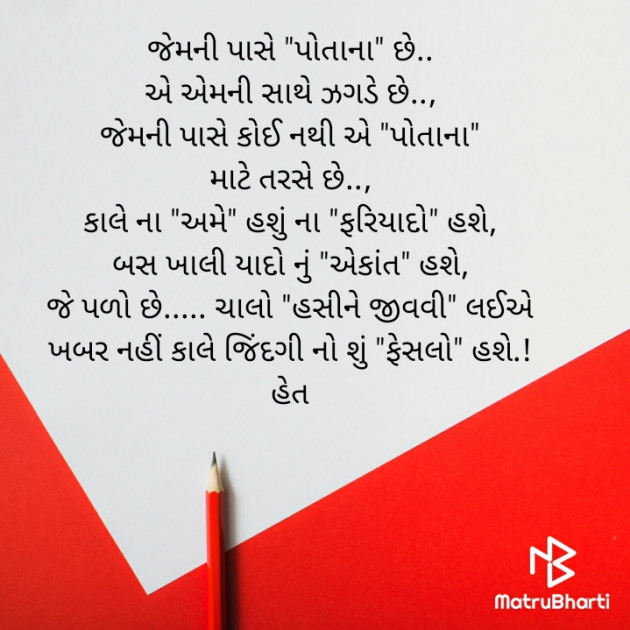 જેમની પાસે "પોતાના" છે..
એ એમની સાથે ઝગડે છે..,
જેમની પાસે કોઈ નથી એ "પોતાના"
માટે તરસે છે..,
કાલે ના "અમે" હશું ના "ફરિયાદો" હશે,
બસ ખાલી યાદો નું "એકાંત" હશે,
જે પળો છે..... ચાલો "હસીને જીવવી" લઈએ
ખબર નહીં કાલે જિંદગી નો શું "ફેસલો" હશે.!
હેત
MatruBharti